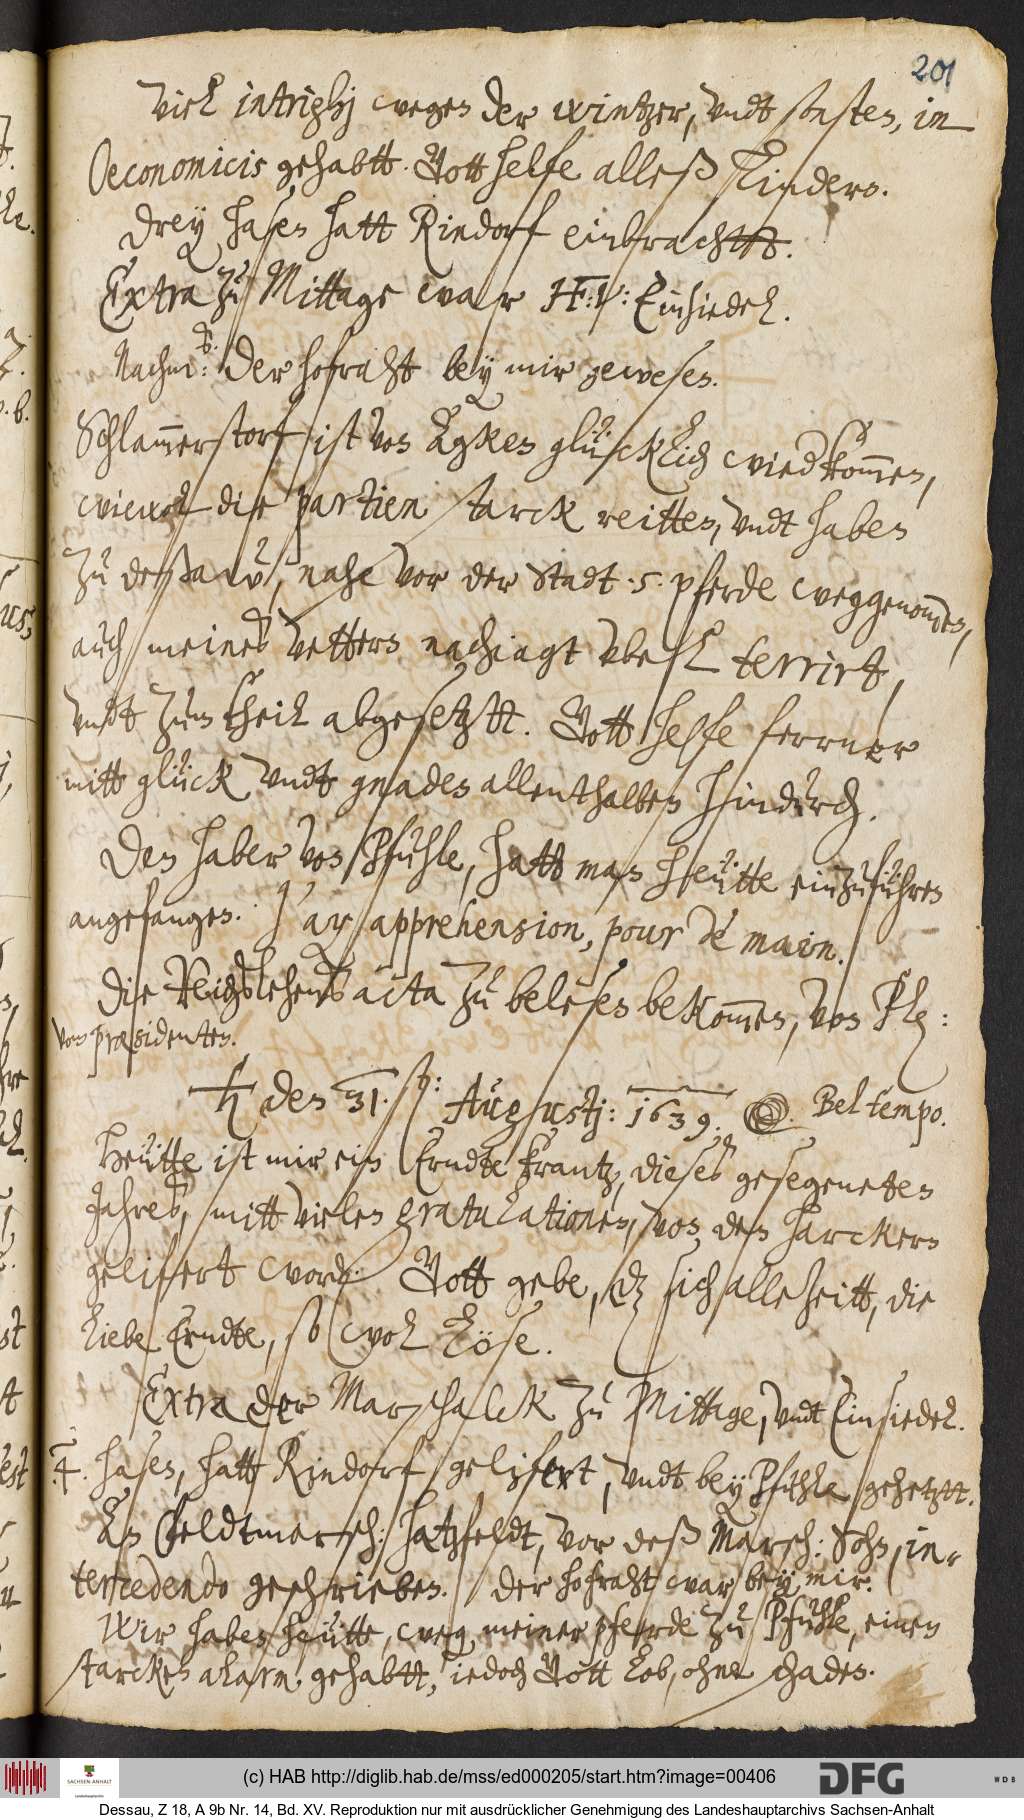 201
Viel intrighj wegen der wintzer, vndt sonsten, in
Oeconomicis gehabtt. Gott helfe alleß lindern.
Dreÿ hasen hatt Rindorf einbrachtt.
Extra zu Mittage war H: V: Einsiedel.
Nachmitt: der hofraht beÿ mir gewesen.
Schlammerstorf ist von Egken glücklich wiedkommen,
wiewol die partien starck reitten, vndt haben
zu deßaw, nahe vor der Stadt .5. pferde weggenommen,
auch meines vetters nachiagt vbel terrirt,
vndt zum theil abgesetztt. Gott helfe ferrner
mitt glück vndt gnaden allenthalben hindurch.
Den haber von Pfuhle, hatt man heütte einzuführen
angefangen. J'ay apprehension, pour demain.
Die Reichslehens acta zu belesen bekommen, von Plz:
von præsidenten.
♄ den 31. sten: Augustj: 1639. Bel tempo.
Heütte ist mir ein Erndte krantz, dieses gesegeneten
Jahres, mitt vielen gratulationen, von den harckern
gelifert worden. Gott gebe, dz sich alleheitt, die
liebe Erndte, so wol löse.
Extra der Marschalck zu Mittage, vndt Einsiedel.
.4. hasen, hatt Rindorf gelifert, vndt beÿ Pfuhle gehetztt.
An Feldtmarsch: Hatzfeldt, vor deß Marsch: Sohn, in-
tercedendo geschrieben. Der hofraht war beÿ mir.
Wir haben heütte, weg, meiner pferde zu Pfuhle, einen
starcken alarm, gehabtt, iedoch Gott lob, ohne schaden.
(c) HAB http://diglib.hab.de/mss/ed000205/start.htm?image=00406
SACHSEN-ANHALT
DFG
WDB
Dessau, Z 18, A 9b Nr. 14, Bd. XV. Reproduktion nur mit ausdrücklicher Genehmigung des Landeshauptarchivs Sachsen-Anhalt